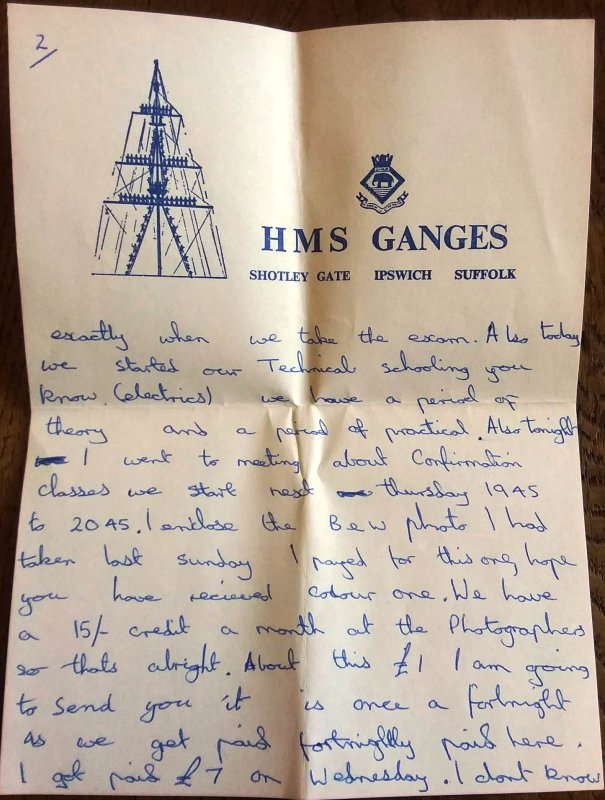 2/
HMS GANGES
SHOTLEY GATE IPSWICH SUFFOLK
exactly when we take the exam. Also today
we started our Technical schooling you
know. (electrics) we have a period of
theory and a period of practical. Also tonight
I went to meeting about Confirmation
classes we start next thursday 1945
to 2045. I enclose the B & W photo I had
taken last sunday I payed for this one, hope
you have recieved colour one. We have
a 15/- credit a month at the Photographers
so thats alright. About this £1 I am going
to send you it is once a fortnight
As we get paid fortnightly paid here.
I got paid £7 on Wednesday. I dont know